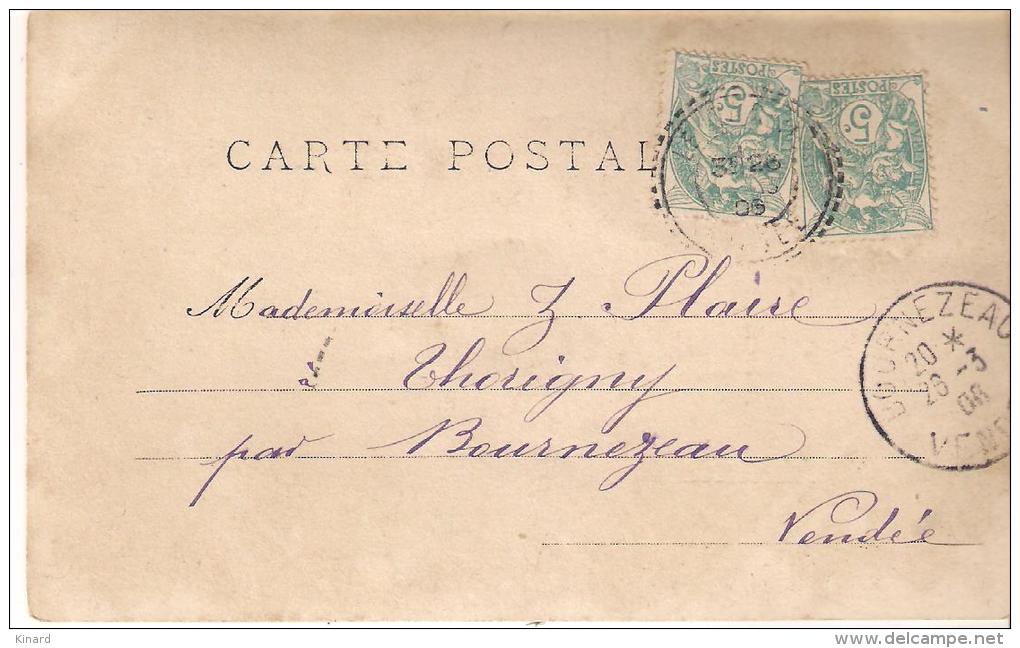 POSTES
5
POSTES
5
CARTE POSTAL
Mademoiselle Z Plaire
Thorigny
par Bournezeau
Vendée
BOURNEZEAU
20 *
26 -3
06
VEND
Kinard
www.delcampe.net